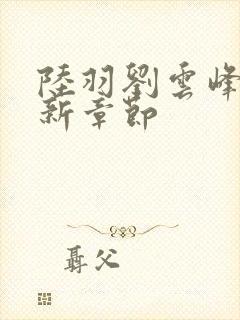 陸羽劉雲峰
新章節
聶父